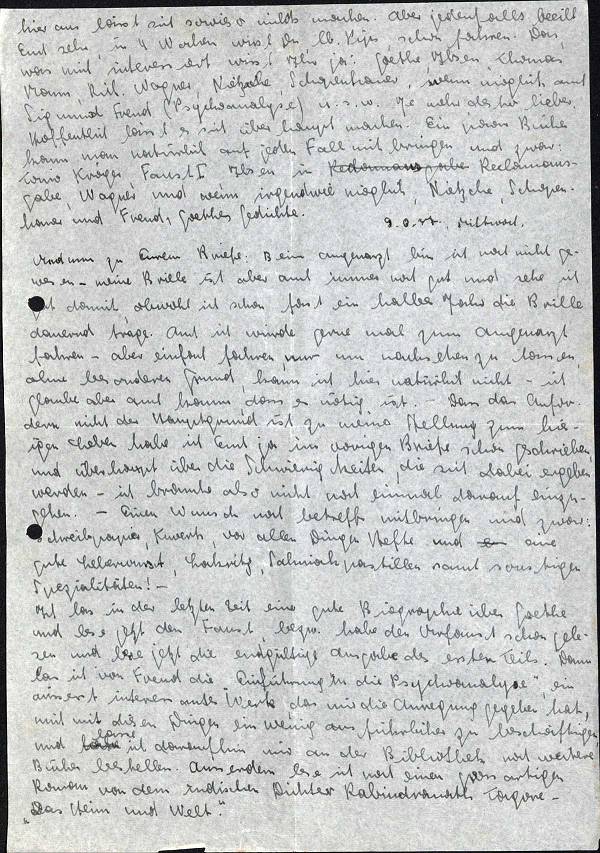 hier aus lässt sich sowieso nichts machen. Aber jedenfalls beeilt
Euch sehr, in 4 Wochen wird Dr. lb. schon fahren. Das,
was mich interessiert wisst Ihr ja: Goethe, Ibsen, Thomas
Mann, Rich. Wagner, Nietzsche, Schopenhauer, wenn möglich auch
Sigmund Freud (Psychoanalyse) u.s.w. Je mehr desto lieber.
Hoffentlich lässt es sich überhaupt machen. Ein paar Bücher
kann man natürlich auf jeden Fall mitbringen und zwar:
Tonio Kröger Faust I Ibsen in Reclamausgabe Reclamaus-
gabe, Wagner und wenn irgendwie möglich, Nietzsche, Schopen-
hauer und Freud, Goethes Gedichte.
9.6.37. Mittwoch.
Und nun zu Eurem Briefe. Beim Augenarzt bin ich noch nicht ge-
wesen - meine Brille ist aber auch immer noch gut und sehe ich
gut damit, obwohl ich schon fast ein halbes Jahr die Brille
dauernd trage. Auch ich würde gerne mal zum Augenarzt
fahren - aber einfach fahren, nur um nachsehen zu lassen
ohne besonderen Grund, kann ich hier natürlich nicht - ich
glaube aber auch kaum dass es nötig ist. - Dass das Anfor-
dern nicht der Hauptgrund ist zu meine Stellung zum hie-
sigen Leben habe ich Euch ja im vorigen Briefe schon geschrieben,
und überhaupt über die Schwierigkeiten, die sich dabei ergeben
werden - ich brauche also nicht noch einmal darauf einzu-
gehen. - Einen Wunsch noch betreffs mitbringen und zwar:
Schreibpapier, Kuverts, vor allen Dingen Hefte und eine
gute Leberwurst, Lakritz, Salmiakpastillen samt sonstigen
Spezialitäten! -
Ich las in der letzten Zeit eine gute Biographie über Goethe
und lese jetzt den Faust, bezw. habe den Urfaust schon gele-
sen und lese jetzt die endgültige Ausgabe des ersten Teils. Dann
las ich von Freud die "Einführung in die Psychoanalyse", ein
äusserst interessantes Werk, das mir die Anregung gegeben hat,
mich mit diesen Dingen ein wenig ausführlicher zu beschäftigen
und lasse ich daraufhin mir an der Bibliothek noch weitere
Bücher bestellen. Ausserdem lese ich noch einen grossartigen
Roman von dem indischen Dichter Rabindranath Tagore -
"Das Heim und Welt."